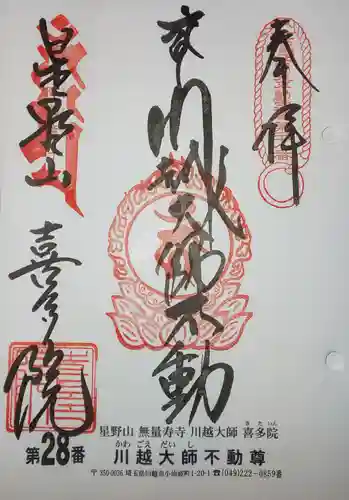 奉拝
川越大師不動
星野山
喜多院
星野山 無量寿寺 川越大師 喜多院
きたいん
かわ ごえ だい し
第28番 川越大師不動尊
〒350-0036 埼玉県川越市小仙波町1-20-1 ☎(049)222-0859番